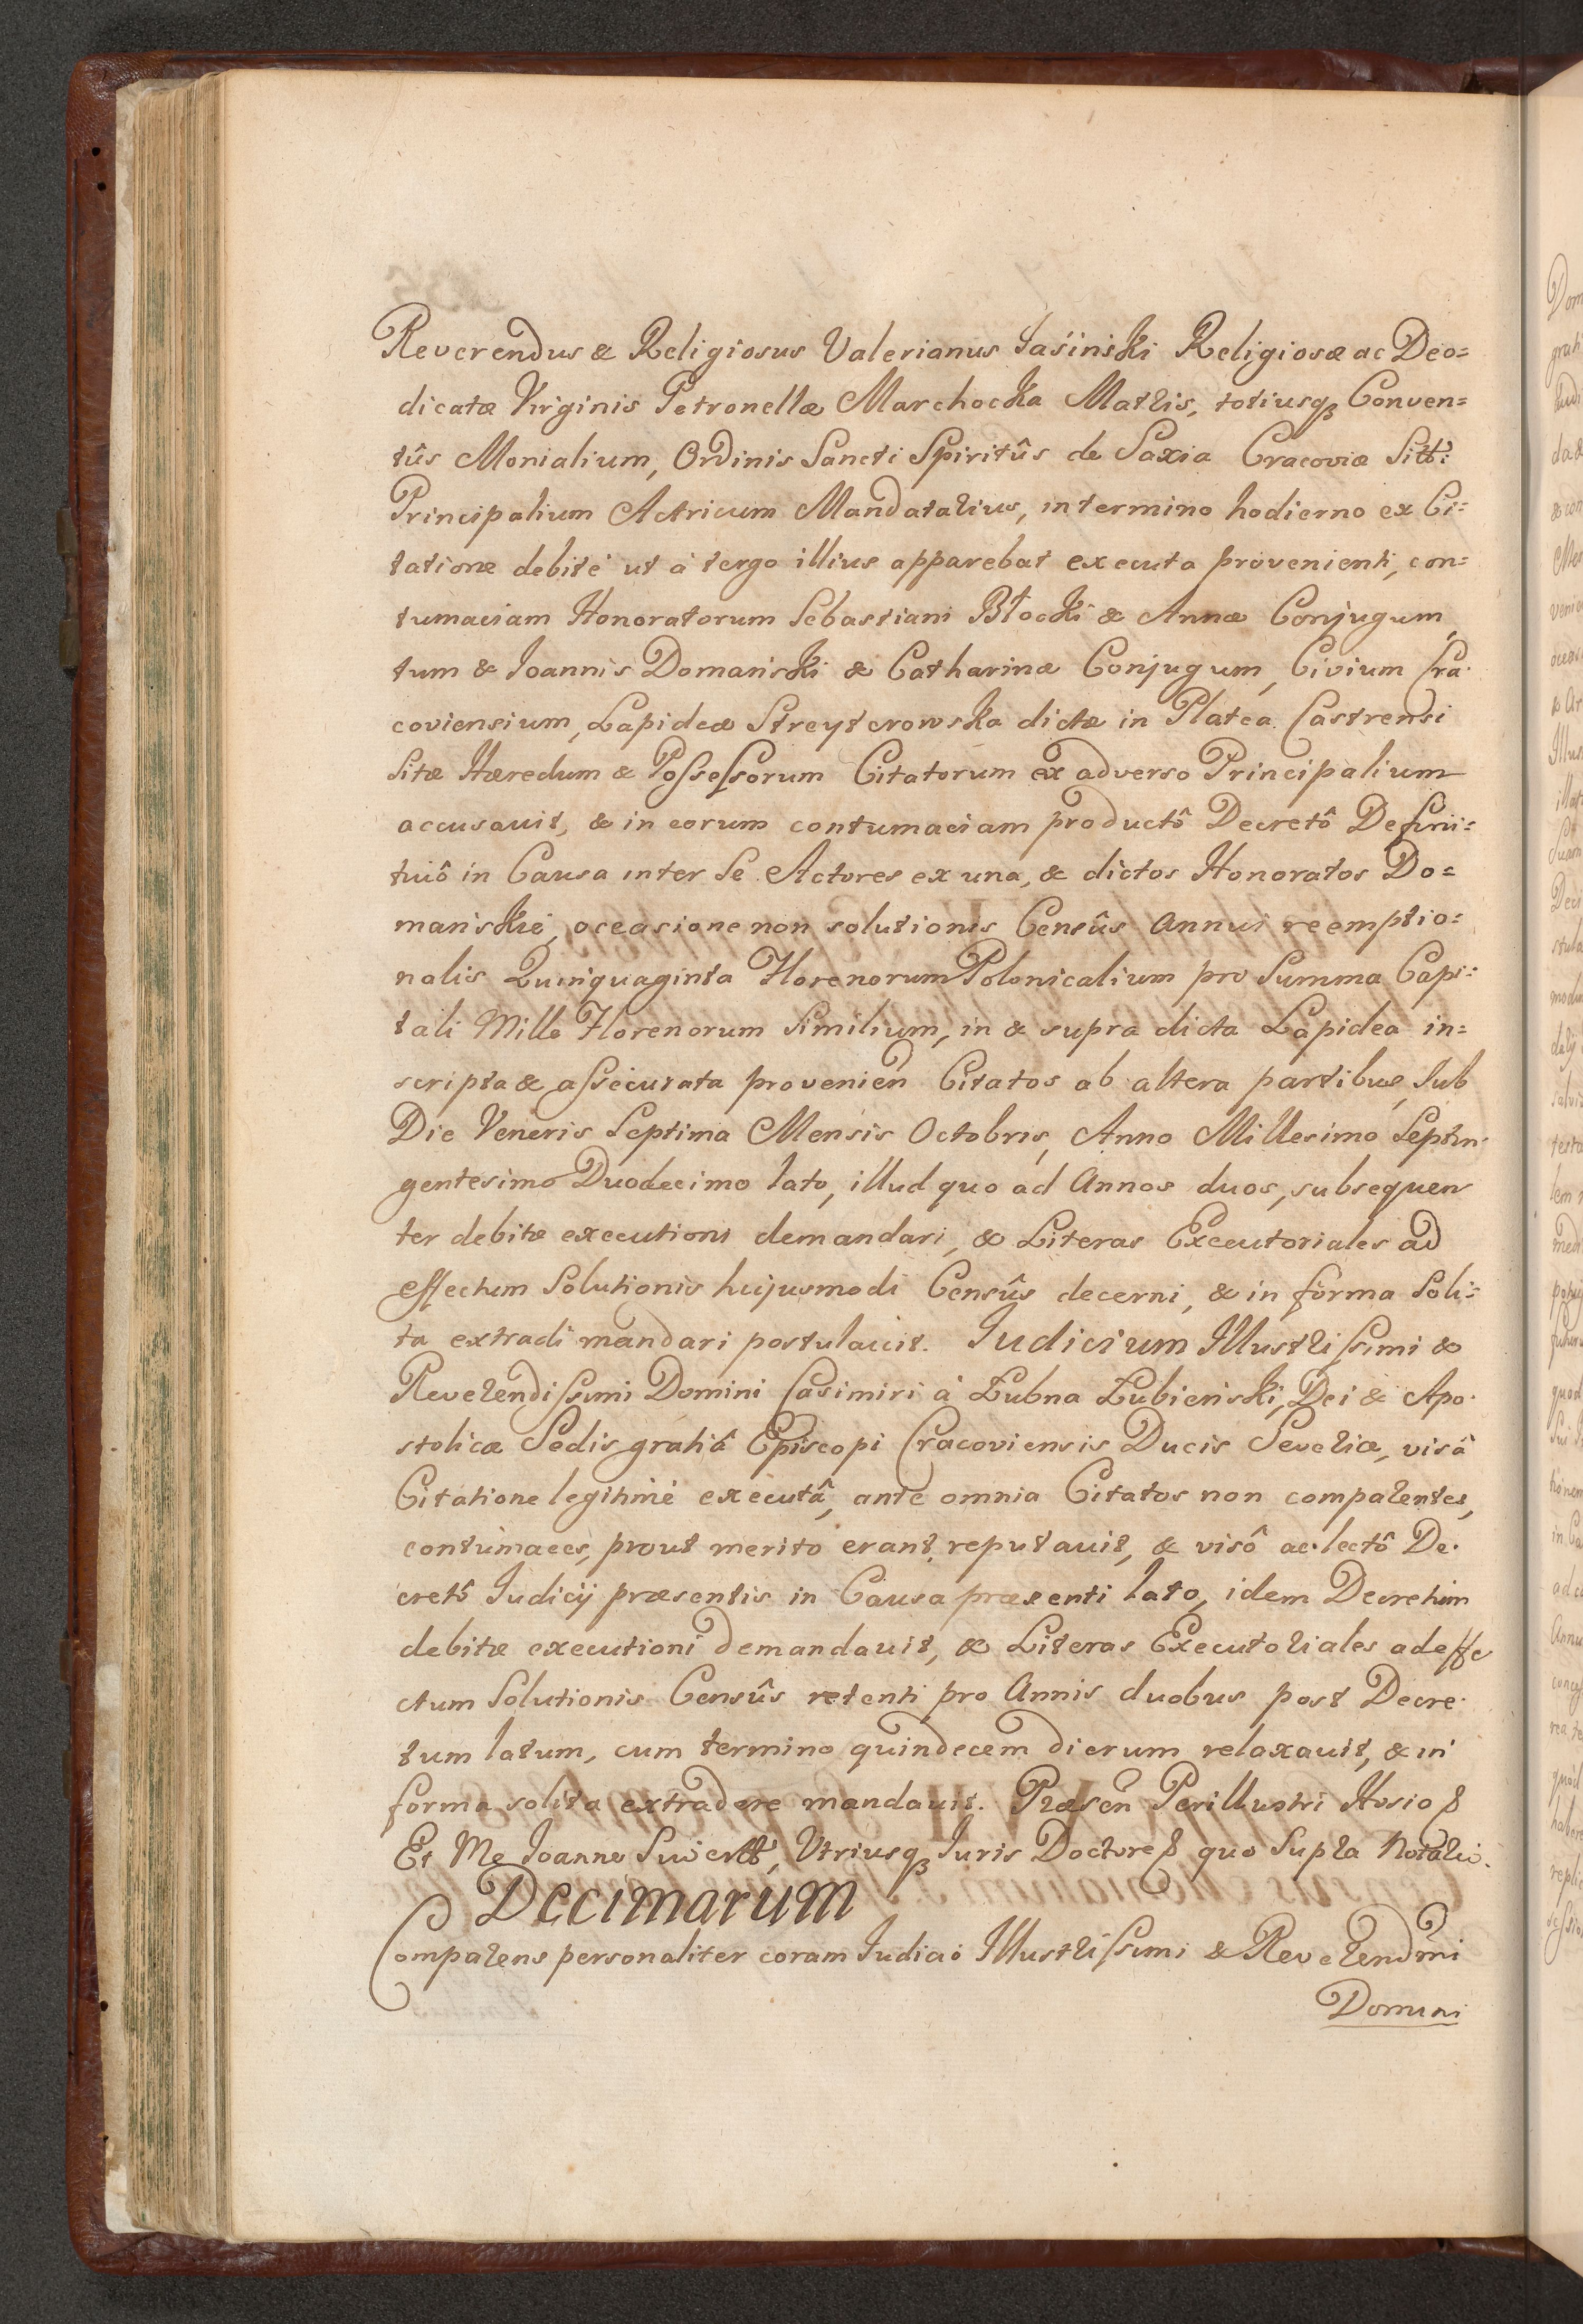 Reverendus & Religiosus Valerianus Jasiński Religiosæ ac Deo=
dicatæ Virginis Petronellæ Marchocka Matris, totiusqꝫ Conven=
tûs Monialium, Ordinis Sancti Spiritûs de Saxia Cracoviæ Sitt:
Principalium Actricum Mandatarius, in termino hodierno ex Ci=
tatione debitè ut à tergo illius apparebat executa provenienti, con=
tumaciam Honoratorum Sebastiani Błocki & Annæ Conjugum,
tum & Joannis Domański & Catharinæ Conjugum, Civium Cra
coviensium, Lapideæ Streyterowska dictæ in Platea Castrensi
Sitæ Hæredum & Poſseſsorum Citatorum ex adverso Principalium
accusavit, & in eorum contumaciam productô Decretô Defini=
tivô in Causa inter Se Actores ex una, & dictos Honoratos Do=
mańskie, occasione non solutionis Censûs Annui reemptio=
nalis Quinquaginta Florenorum Polonicalium pro Summa Capi=
tali Mille Florenorum Similium, in & supra dicta Lapidea in=
scripta & aſsecurata provenień Citatos ab altera partibus, Sub
Die Veneris Septima Mensis Octobris, Anno Millesimo Septin
gentesimo Duodecimo lato, illud quo ad Annos duos, subsequen
ter debitæ executioni demandari, & Literas Executoriales ad
effectum Solutionis hujusmodi Censûs decerni, & in forma Soli=
ta extradi mandari postulavit. Judicium Illustriſsimi &
Reverendiſsimi Domini Casimiri à Łubna Łubieński, Dei & Apo
stolicæ Sedis gratiâ Episcopi Cracoviensis Ducis Severiæ, visâ
Citatione legitimè executâ, ante omnia Citatos non comparentes,
contumaces, prout merito erant, reputavit, & visô ac lectô De
cretô Judicij præsentis in Causa præsenti lato, idem Decretum
debitæ executioni demandavit, & Literas Executoriales ad effe
ctum Solutionis Censûs retenti pro Annis duobus post Decre
tum latum, cum termino quindecem dierum relaxavit, & in
forma solita extradere mandavit. Præseń Perillustri Hosio ꝑ
Et Me Joanne Suiertt, Utriusqꝫ Juris Doctore ꝑ quo Supra Notario.
Decimarum
Comparens personaliter coram Judicio Illustriſsimi & Reverendmi
Domini